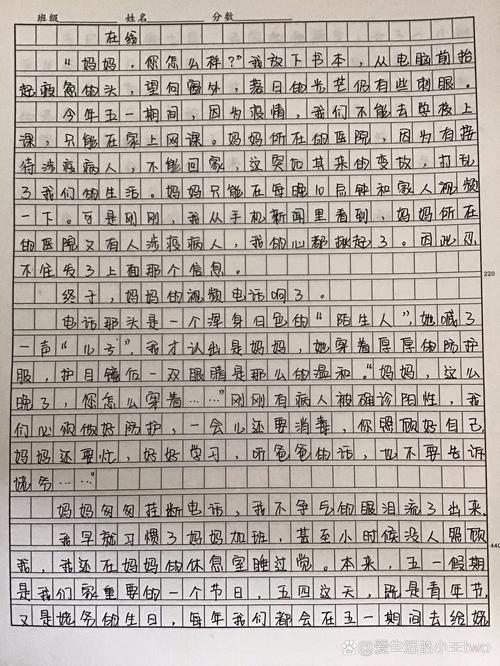 班级 姓名 分数
在线
“妈妈，你怎么样？”我放下书本，从电脑前抬
起疲惫的头，望向窗外，落日的光芒仍有些刺眼。
今年五一期间，因为疫情，我们不能去学校上
课，只能在家上网课。妈妈所在的医院，因为有接
待涉疫病人，不能回家，这突如其来的变故，打乱
了我们的生活。妈妈只能在每晚10点钟和家人视频
一下。可是刚刚，我从手机新闻里看到，妈妈所在
的医院又有人涉疫病人，我的心都揪起了。因此忍
不住发了上面那个信息。
220
终于，妈妈的视频电话响了。
电话那头是一个浑身白色的“陌生人”，她喊了
一声“儿子”，我才认出是妈妈，她穿着厚厚的防护
服，护目镜后一双眼睛是那么的温和。“妈妈，这么
晚了，你怎么穿着……”刚刚有病人被确诊阳性，我
们必须做好防护，一会儿还要消毒，你照顾好自己，
妈妈还要忙，好好学习，听爸爸的话，也不要告诉
姥爷……”
妈妈匆匆挂断电话，我不争气的眼泪流了出来。
我早就习惯了妈妈加班，甚至小时候没人照顾
440
我，我还在妈妈的休息室睡过觉。本来，五一假期
是我们家重要的一个节日，五四这天，既是青年节，
又是姥爷的生日，每年我们都会在五一期间去给姥
@爱生活的小王two